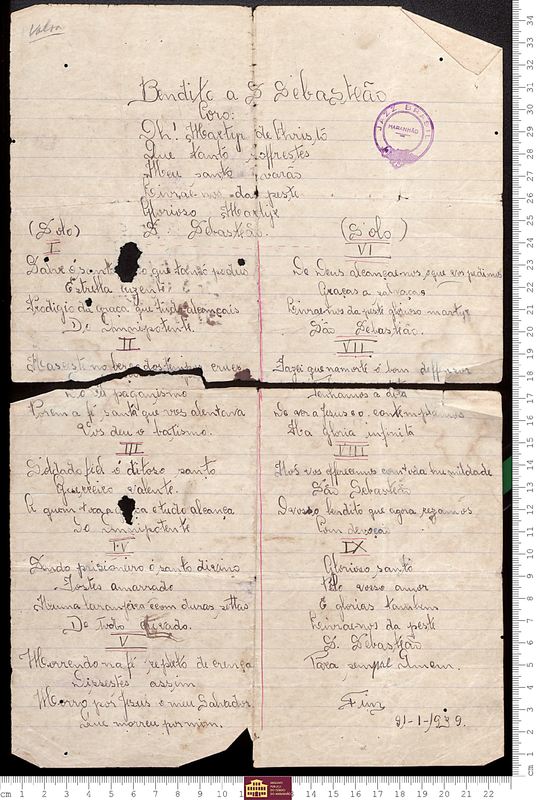 Valsa
Bendito a S Sebastião
Coro:
Oh! Martyr de Christo
Que tanto soffrestes
Meu santo varão
Livrae-nos da peste
Glorioso Martyr
S. Sebastião.
JAZZ BRASIL
MARANHÃO
(Sólo)
I
Salve ó santo que
Estrella luzente
Prodigio da graça que tudo alcançais
Do Omnipotente.
II
Nasceste no berço dos tempos crueis
paganismo
Porem a fé santa que vos alentava
Vos deu o batismo.
III
Soldado fiel ó ditoso santo
Guerreiro valente.
A quem tudo alcança
Do Omnipotente
IV
Sendo prisioneiro ó santo divino
Fostes amarrado
Numa laranjeira com duras settas
De todo
V
Morrendo na fé, repleto de crença
Dissestes assim
Morro por Jesus o meu Salvador
Que morreu por mim.
(Sólo)
VI
De Deus alcançae-nos, que vos pedimos
Graças a salvação
Livrae-nos da peste glorioso martyr
São Sebastião.
VII
Fazei que na morte ó bom deffensor
Tenhamos a dita
De ver a Jesus e o contemplarmos
Na Gloria infinita
VIII
Nós vos offerecemos com humildade
São Sebastião
bendito que agora resamos
Com devoção
IX
Glorioso santo
Pelo vosso amor
E glorias tambem
Livrae-nos da peste
S. Sebastião
Para sempre Amem.
Fim
21-1-1939.
cm
1 2 3 4 5 6 7 8 9 10 11 12 13 14 15 16 17 18 19 20 21 22